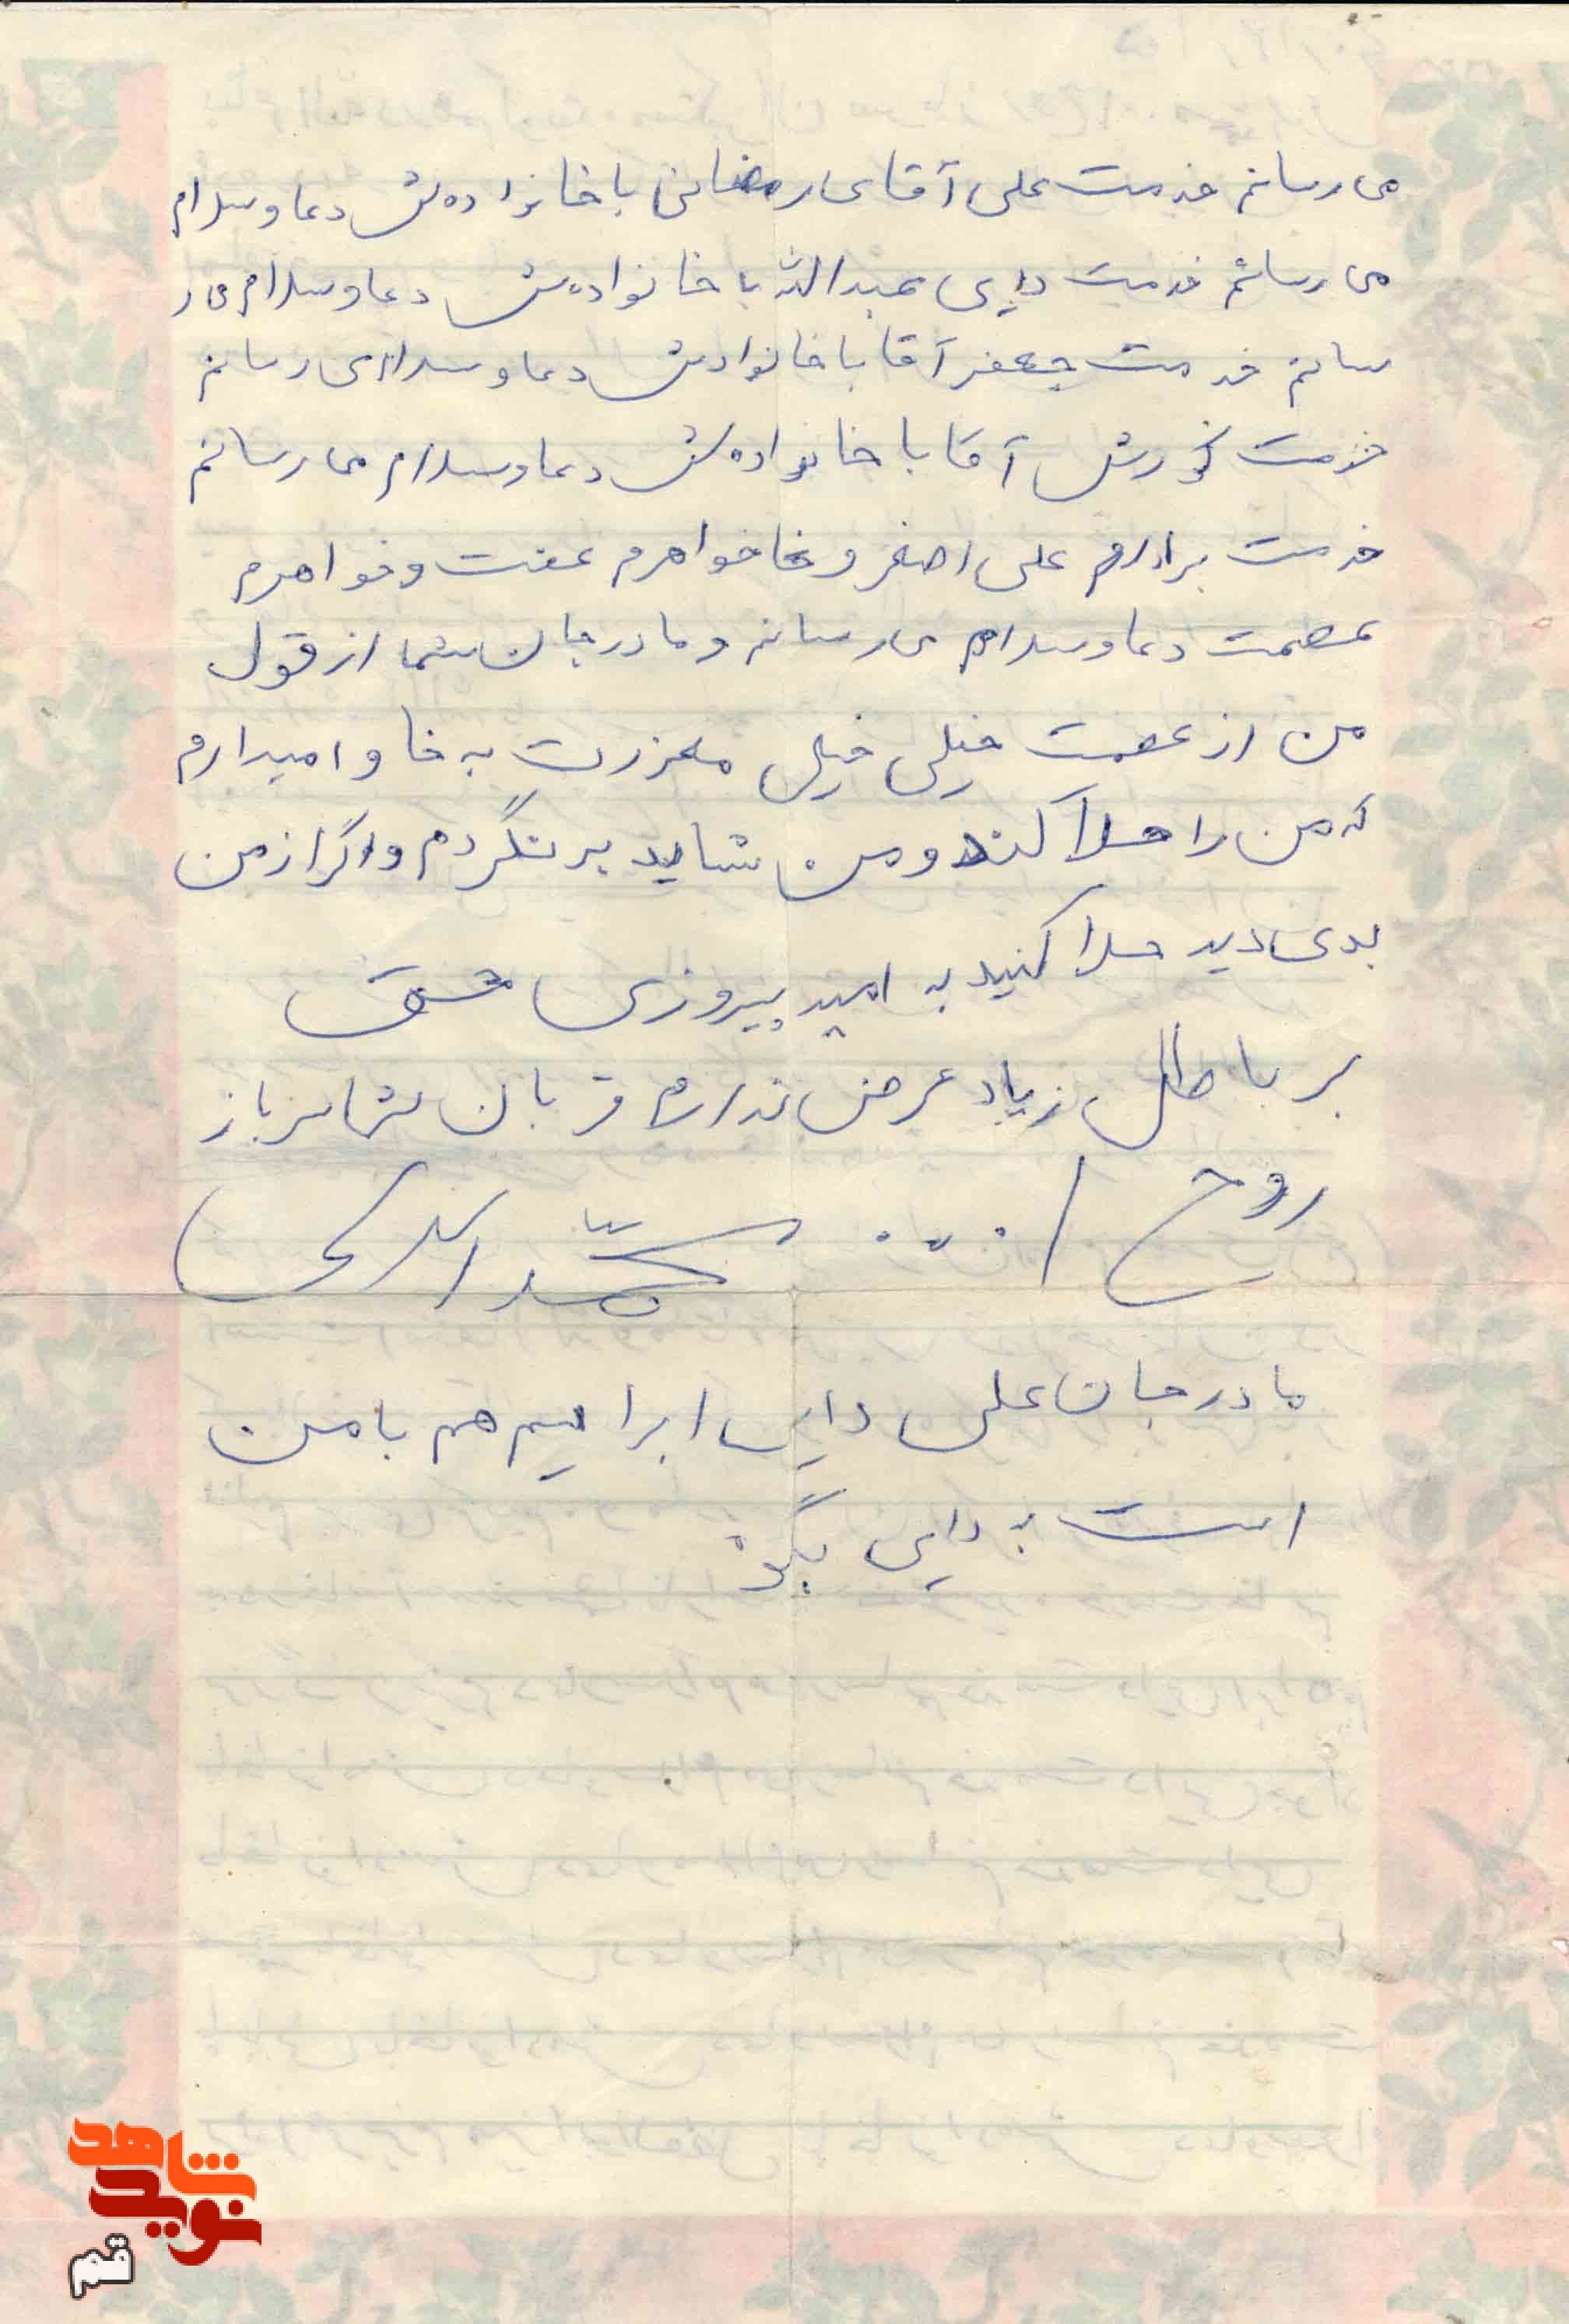 می رسانم خدمت علی آقای رمضانی با خانواده ش دعا و سلام
می رسانم خدمت دایی عبدالله با خانواده ش دعا و سلام می ر
سانم خدمت جعفر آقا با خانوادش دعا و سلام می رسانم
خدمت کورش آقا با خانواده ش دعا و سلام می رسانم
خدمت برادرم علی اصغر و خواهرم عفت و خواهرم
عصمت دعا و سلام می رسانم و مادر جان شما از قول
من از عصمت خیلی خیلی معزرت به خا و امیدارم
که من را حلا کند و من شاید برنگردم و اگر از من
بدی دید حلا کنید به امید پیروزی حق
بر باطل زیاد عرض ندارم قربان شما سرباز
روح ا...
مادر جان علی دایی ابراهیم هم با من
است به دایی بگو
شاهد
نوید
قم